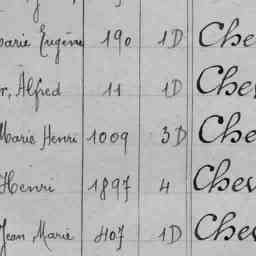 arie Eugène 190 1D Che
r, Alfred 11 1D Chev
Marie Henri 1009 3D Che
Henri 1897 4 Chev
Jean Marie 407 1D Che